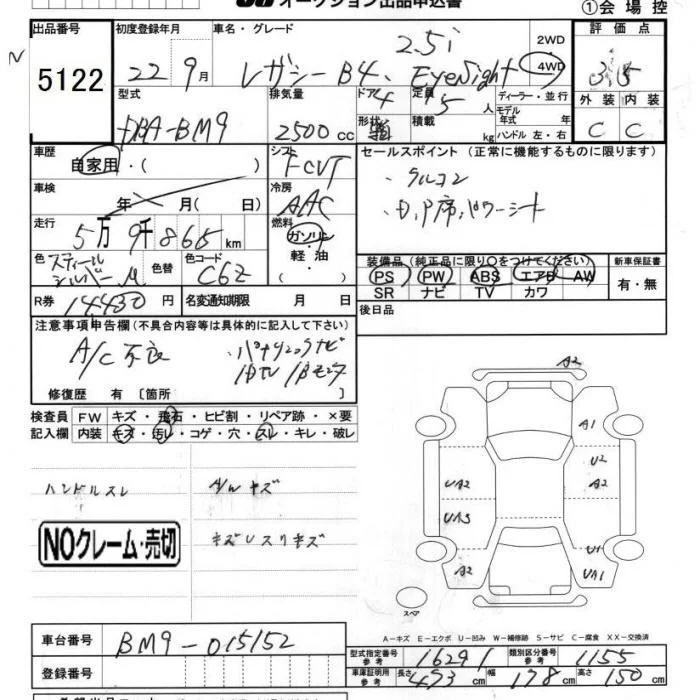 オークション出品申込書
①会場控
出品番号 初度登録年月 車名・グレード 評価点
N 5122 22 9月 レガシーB4、 2.5i EyeSight 2WD 4WD 3.5
型式 排気量 ドア 定員 ディーラー・並行 外装 内装
DBA-BM9 2500cc 4 5人 モデル年式 年 C C
形状 積載 kg ハンドル 左・右
車歴 シフト セールスポイント (正常に機能するものに限ります)
自家用・( ) FCVT
車検 冷房
年 月( 日) AAC ・D,P席,パワーシート
走行 燃料
5万 9千 865km ガソリン・軽油・
色 色替 色コード 装備品(純正品に限り○をつけてください) 新車保証書
スティールシルバーM C6Z PS PW ABS エアB AW 有・無
SR ナビ TV カワ
R券 14430円 名変通知期限 月 日 後日品
注意事項申告欄(不具合内容等は具体的に記入して下さい)
A/C不良
修復歴 有 [箇所 ]
検査員 FW キズ・飛石・ヒビ割・リペア跡・×要
記入欄 内装 キズ・汚レ・コゲ・穴・スレ・キレ・破レ
ハンドルスレ A/Wキズ
NOクレーム・売切
A2
A1
U2
UA2 A2
UA3
U1
A2 UA1
スペア
A-キズ E-エクボ U-凹み W-補修跡 S-サビ C-腐食 XX-交換済
車台番号 BM9-015152
型式指定番号参考 16291 類別区分番号参考 1155
登録番号 車庫証明用参考 長さ 473cm 幅 178cm 高さ 150cm